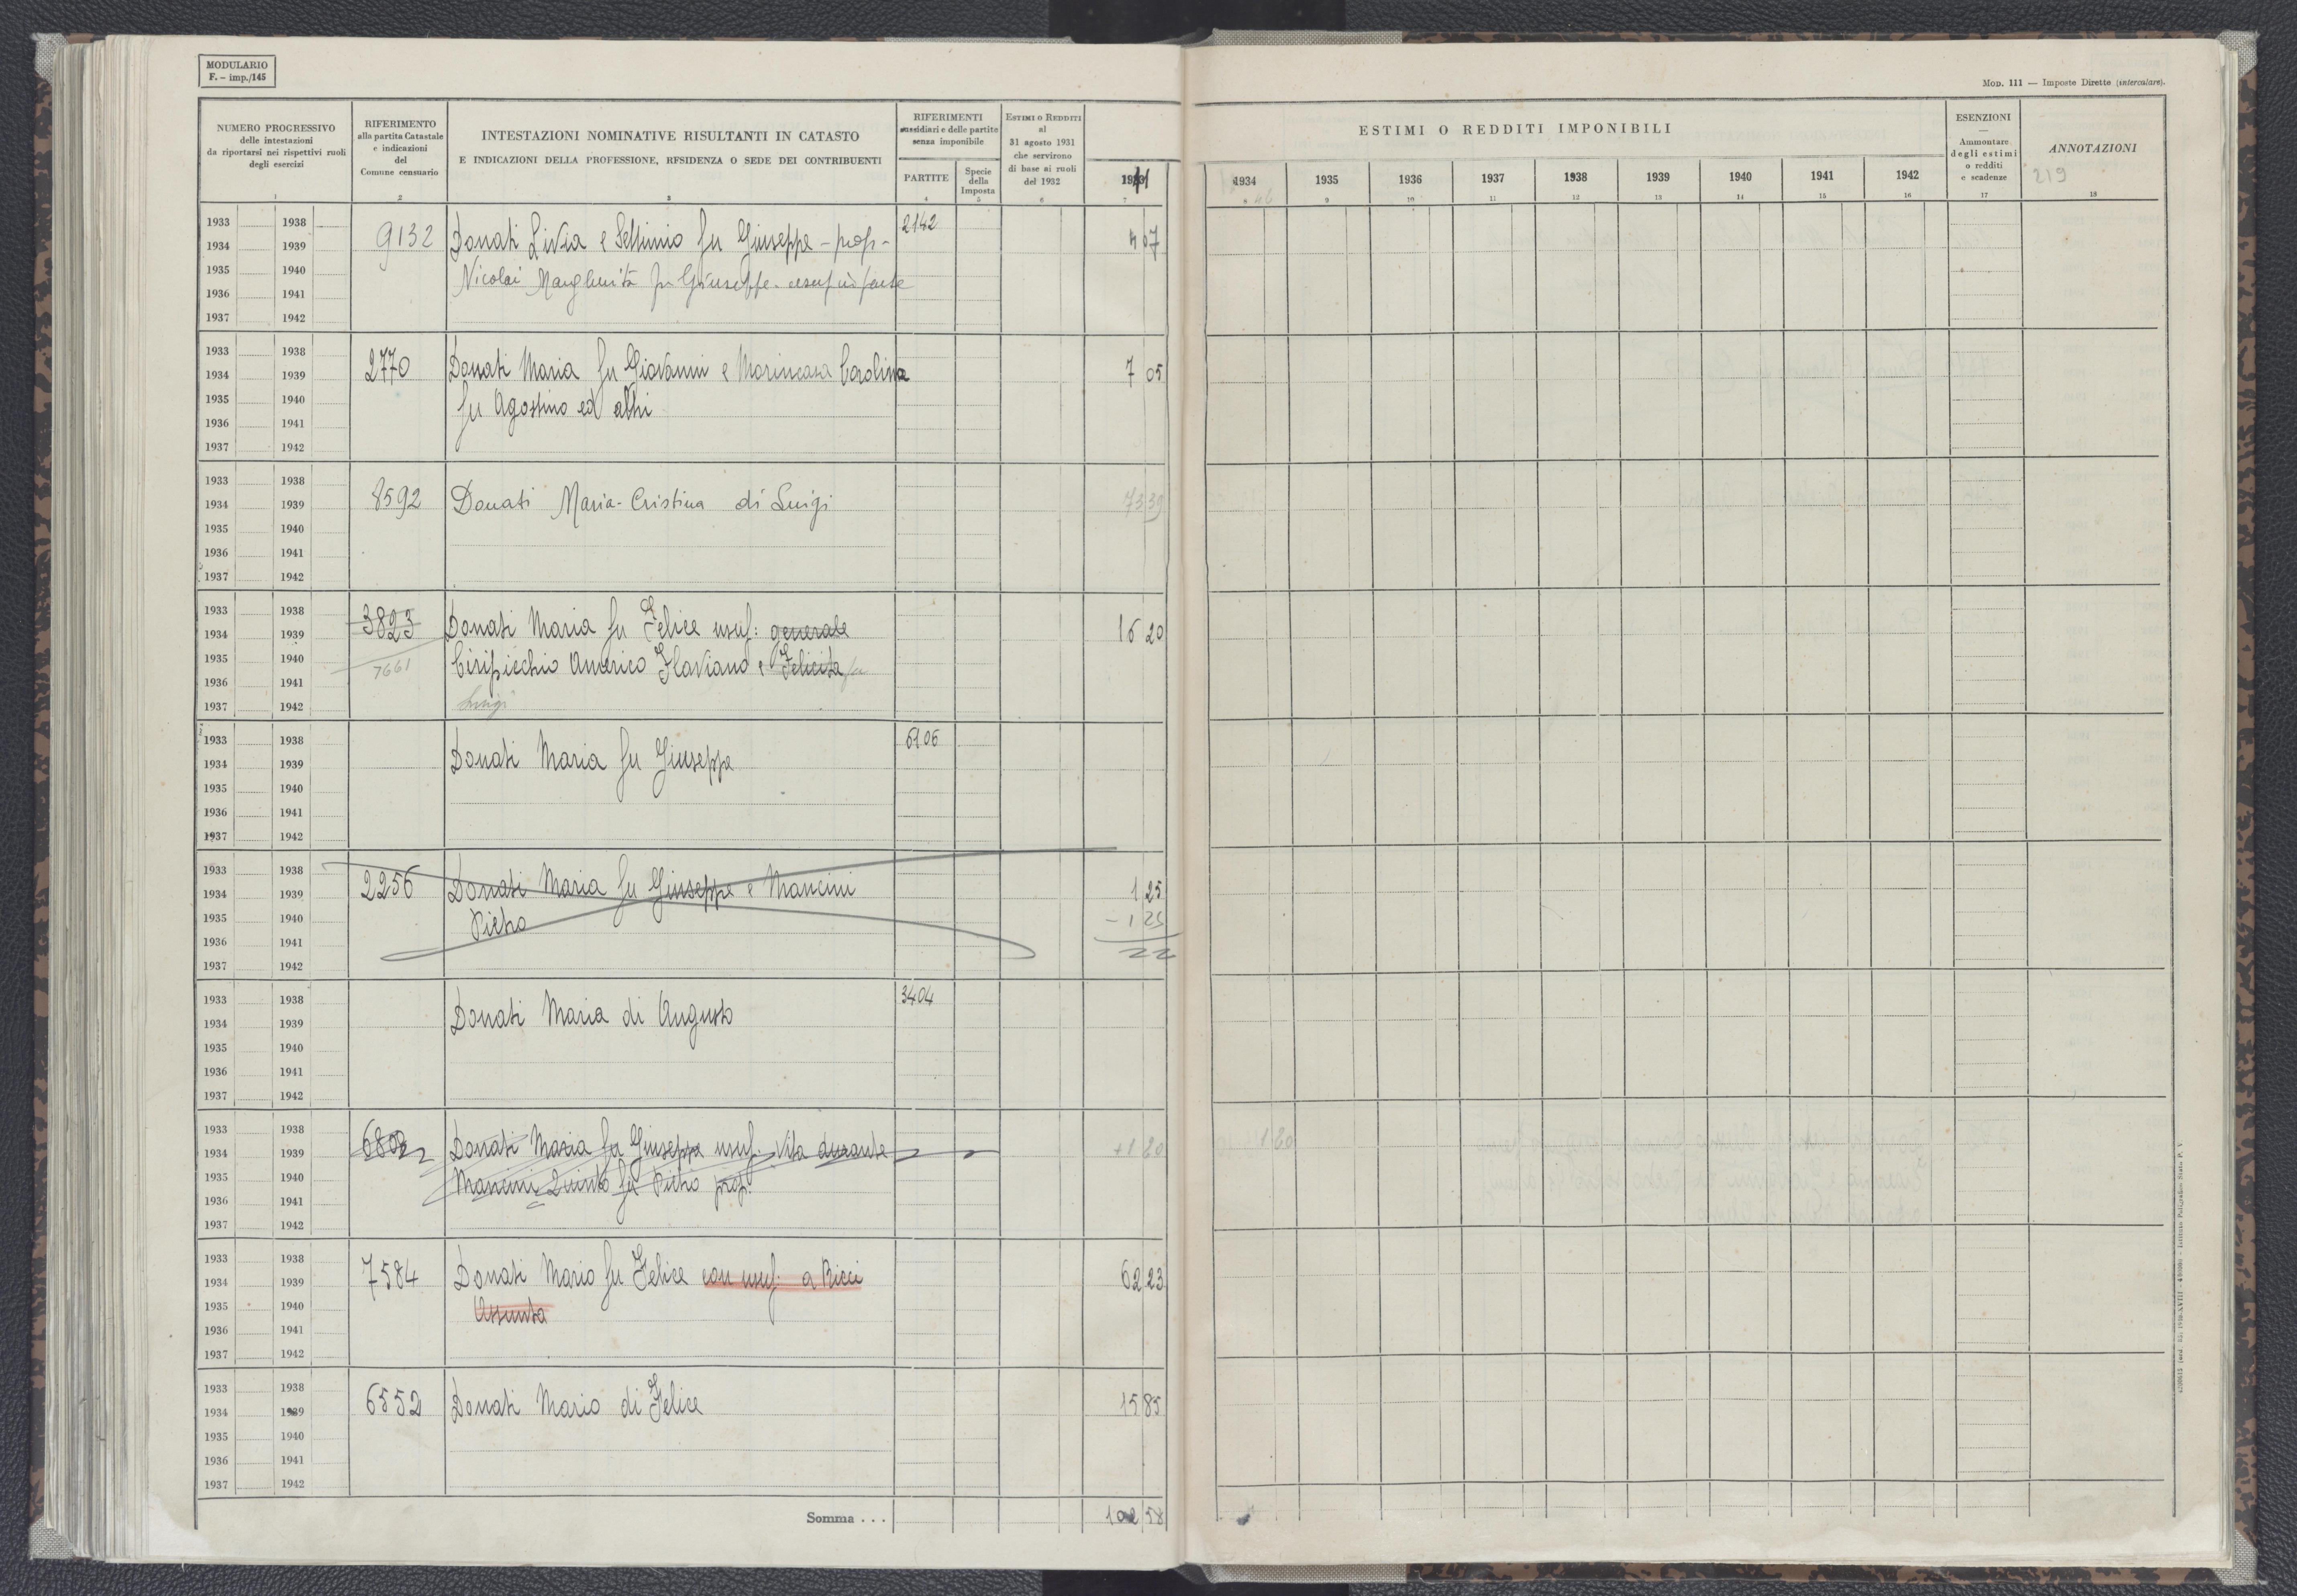 MODULARIO
F. – imp./145
Mod. 111 — Imposte Dirette (intercalare).
NUMERO PROGRESSIVO
delle intestazioni
da riportarsi nei rispettivi ruoli
degli esercizi
1
RIFERIMENTO
alla partita Catastale
e indicazioni
del
Comune censuario
2
INTESTAZIONI NOMINATIVE RISULTANTI IN CATASTO
E INDICAZIONI DELLA PROFESSIONE, RESIDENZA O SEDE DEI CONTRIBUENTI
3
RIFERIMENTI
sussidiari e delle partite
senza imponibile
PARTITE
4
Specie
della
Imposta
5
Estimi o Redditi
al
31 agosto 1931
che servirono
di base ai ruoli
del 1932
6
1941
7
ESTIMI O REDDITI IMPONIBILI
1934 1935 1936 1937 1938 1939 1940 1941 1942
9 10 11 12 13 14 15 16
ESENZIONI
—
Ammontare
degli estimi
o redditi
e scadenze
17
ANNOTAZIONI
219
18
1933 1938
1934 1939
1935 1940
1936 1941
1937 1942
9132 Donati Livia e Settimio fu Giuseppe – prop – 2142 4 07
Nicolai Margherita fu Giuseppe
1933 1938
1934 1939
1935 1940
1936 1941
1937 1942
2770 Donati Maria fu Giovanni e Carolina 7 05
fu Agostino ed altri
1933 1938
1934 1939
1935 1940
1936 1941
1937 1942
8592 Donati Maria-Cristina di Luigi 73 39
1933 1938
1934 1939
1935 1940
1936 1941
1937 1942
3823 Donati Maria fu Felice usuf: generale 16 20
7661 Ciripicchio Americo Flaviano e Felicita fu
Luigi
1933 1938
1934 1939
1935 1940
1936 1941
1937 1942
Donati Maria fu Giuseppe 6106
1933 1938
1934 1939
1935 1940
1936 1941
1937 1942
2256 Donati Maria fu Giuseppe e Mancini 1 25
Pietro – 1 25
1933 1938
1934 1939
1935 1940
1936 1941
1937 1942
Donati Maria di Augusto 3404
1933 1938
1934 1939
1935 1940
1936 1941
1937 1942
Donati Maria fu Giuseppe usuf. vita durante +1 20
Mancini Quinto fu Pietro prop.
1933 1938
1934 1939
1935 1940
1936 1941
1937 1942
7584 Donati Mario fu Felice con usuf: a Ricci 62 23
Assunta
1933 1938
1934 1939
1935 1940
1936 1941
1937 1942
6552 Donati Mario di Felice 15 85
Somma . . . 102 58